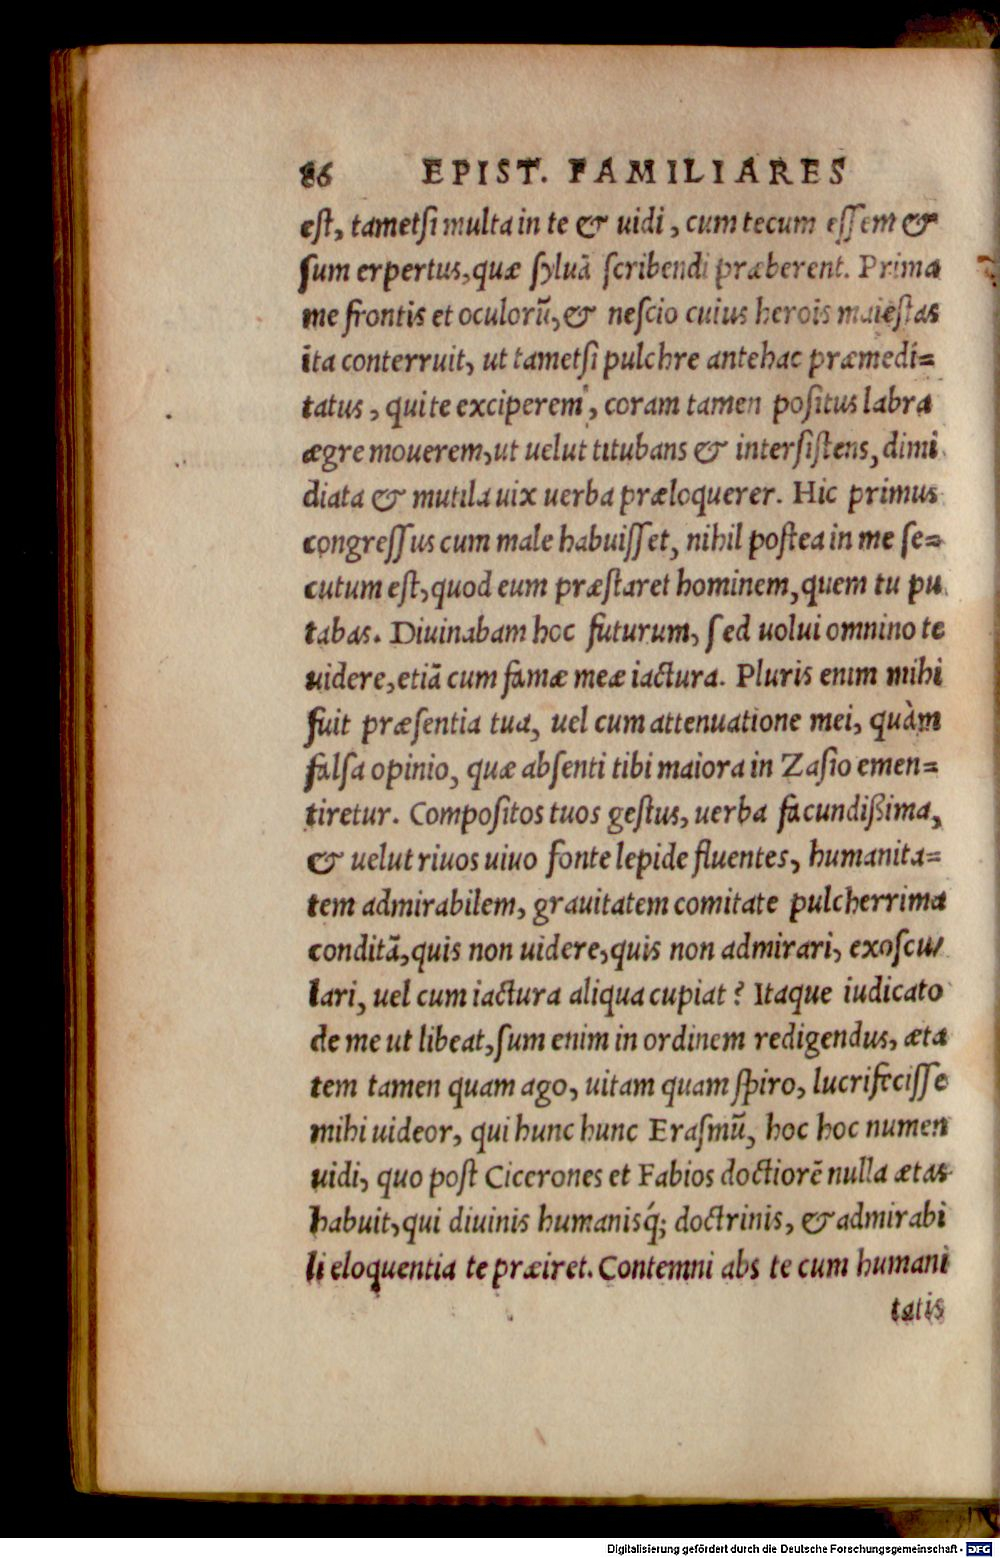 86 EPIST. FAMILIARES
est, tametsi multa in te & uidi, cum tecum essem &
sum erpertus, quæ syluā scribendi præberent. Prima
me frontis et oculorū, & nescio cuius herois maiestas
ita conterruit, ut tametsi pulchre antehac præmedi=
tatus, qui te exciperem, coram tamen positus labra
ægre mouerem, ut uelut titubans & intersistens, dimi
diata & mutila uix uerba præloquerer. Hic primus
congressus cum male habuisset, nihil postea in me se=
cutum est, quod eum præstaret hominem, quem tu pu
tabas. Diuinabam hoc futurum, sed uolui omnino te
uidere, etiā cum famæ meæ iactura. Pluris enim mihi
fuit præsentia tua, uel cum attenuatione mei, quàm
falsa opinio, quæ absenti tibi maiora in Zasio emen=
tiretur. Compositos tuos gestus, uerba facundißima,
& uelut riuos uiuo fonte lepide fluentes, humanita=
tem admirabilem, grauitatem comitate pulcherrima
conditā, quis non uidere, quis non admirari, exoscu/
lari, uel cum iactura aliqua cupiat? Itaque iudicato
de me ut libeat, sum enim in ordinem redigendus, æta
tem tamen quam ago, uitam quam spiro, lucrifecisse
mihi uideor, qui hunc hunc Erasmū, hoc hoc numen
uidi, quo post Cicerones et Fabios doctiorē nulla ætas
habuit, qui diuinis humanisq́; doctrinis, & admirabi
li eloquentia te præiret. Contemni abs te cum humani
tatis
Digitalisierung gefördert durch die Deutsche Forschungsgemeinschaft - DFG